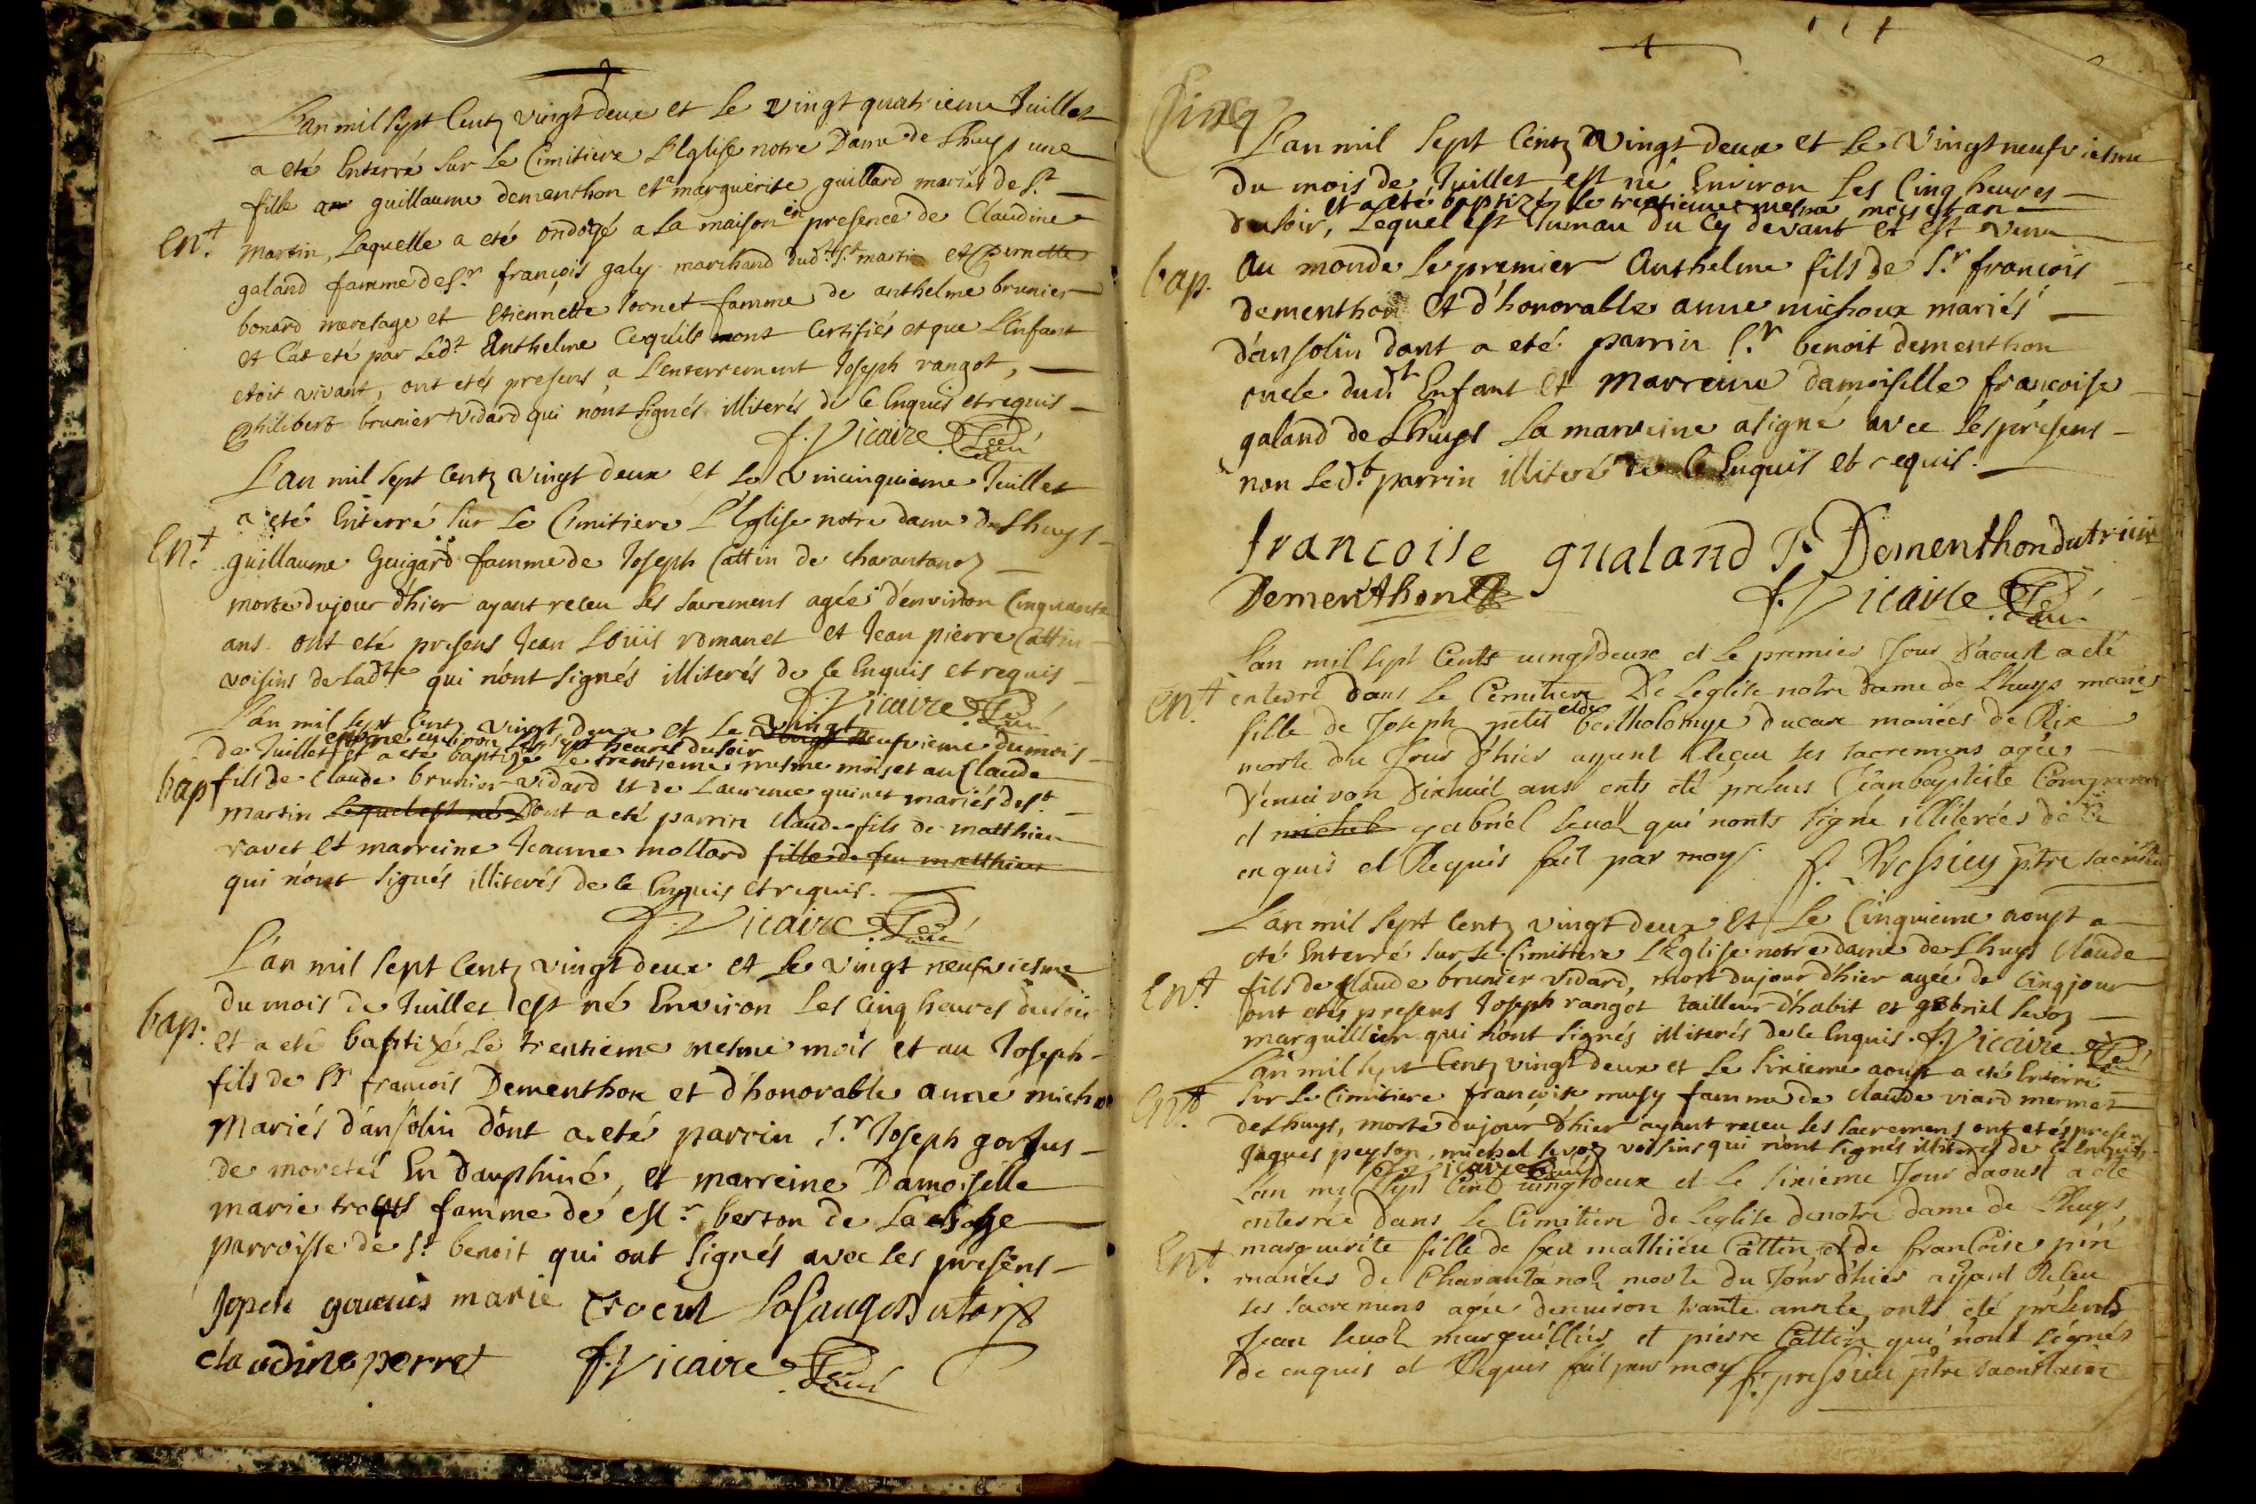 L'an mil sept Centz vingt deux et le vingt quatrieme Juillet
a eté Enterré sur le Cimitiere l'Eglise notre Dame de Lhuys une
fille a guillaume dementhon et marguerite guillard mariés de St
Ent. martin, Laquelle a eté ondoyé a la maison en presence de Claudine
galand famme de Sr. françois galy marchand dud.t St martin et pernette
bonard et Etiennette famme de anthelme brunier
et C'at eté par led.t Anthelme Cequ'ils mont Certifiés et que l'Enfant
etoit vivant, ont etés presens a l'enterrement Joseph rangot,
philibert brunier vidard qui n'ont signés illiterés de ce Enquis et requis
f. Vicaire Curé
L'an mil sept Centz vingt deux et le vincinquieme Juillet
a eté Enterré sur le Cimitiere l'Eglise notre dame de Lhuys
Ent. guillaume Guigard famme de Joseph Cattin de charantanoz
morte dujour d'hier ayant receu les sacremens agée d'environ Cinquante
ans. ont eté presens Jean Loüis romanet et Jean pierre Cattin
voisins de lad.te qui n'ont signés illiterés de ce Enquis et requis
f. Vicaire Curé
L'an mil sept Centz vingt deux et le vingt neufvieme du mois
de Juillet est né environ les sept heures du soir et a eté baptizé le trentieme mesme mois et an Claude
bap fils de Claude brunier vidard et de Laurence guinet mariés de St.
martin Lequel est né Dont a eté parrin Claude fils de matthieu
ravet et marreine Jeanne mollard fille de feu matthieu
qui n'ont signés illiterés de ce Enquis et requis.
f. Vicaire Curé
L'an mil sept Centz vingt deux et le vingt neufviesme
du mois de Juillet est né Environ les Cinq heures du soir
bap. Et a eté baptizé le trentieme mesme mois et an Joseph
fils de Sr françois Dementhon et d'honorable anne micho
Mariés d'ansolin dont a eté parrin S.r Joseph
de moretel En dauphiné, et marreine Damoiselle
marie famme de berton de
parroisse de St. benoit qui ont signés avec les presens
marie
claudine perret f. Vicaire Curé
L'an mil sept Centz Vingt deux et le Vingt neufviesme
du mois de Juillet est né Environ les Cinq heures
et a eté baptizé le trentieme mesme mois et an
du soir, Lequel est Jumau du Cy devant et est venu
bap. Au monde le premier Anthelme fils de S.r françois
dementhon et d'honorable anne michoux mariés
d'ansolin dont a eté parrin S.r benoit dementhon
oncle dud.t Enfant et Marreine damoiselle françoise
galand de Lhuys La marreine a signé avec les présens
non led.t parrin illiteré de ce Enquis et requis.
francoise gualand Dementhon
Dementhon f. Vicaire Curé
L'an mil sept Cents vingt deux et le premier Jour d'aoust a eté
Ent. enterré dans le Cemitiere De l'eglise notre dame de Lhuys
fille de Joseph petit et de bartholomye ducare mariées de Rix
morte du Jour d'hier ayant Reçeu ses sacremens agée
d'environ dixhuit ans onts eté présens Jeanbaptiste
et michel gabriel qui nonts signé illiterées de ce
enquis et Requis fait par moy f. Pressieu ptre
L'an mil sept Centz vingt deux et le Cinquieme aoust a
eté Enterré sur le Cimitiere l'Eglise notre dame de Lhuys Claude
Ent. fils de Claude brunier vidard, mort dujour d'hier agée de Cinq jour
ont etés presens Joseph rangot tailleur d'habit et gabriel sevoz
marguillier qui n'ont signés illiterés de ce Enquis. f. Vicaire Curé
L'an mil sept Centz vingt deux et le sixieme aoust a eté Enterré
Ent. sur le Cimitiere françoise musy famme de claude viard mermet
de Lhuys, morte dujour d'hier ayant receu les sacremens ont etés presens
Jaques peyson, michel sevoz voisins qui n'ont signés illiterés de ce Enquis
f. Vicaire Curé
L'an mil sept Cent vingt deux et le sixieme Jour d'aoust a eté
enterrée dans le Cimitiere de l'eglise de notre dame de Lhuys
Ent. marguerite fille de feu mathieu Cattin et de françoise
mariées de Charantanoz morte du Jour d'hier ayant Reçeu
ses sacremens agée d'environ trante année, onts eté présents
Jean sevoz marguillier et pierre Cattin qui nont signés
de enquis et Requis fait par moy f. pressieu ptre